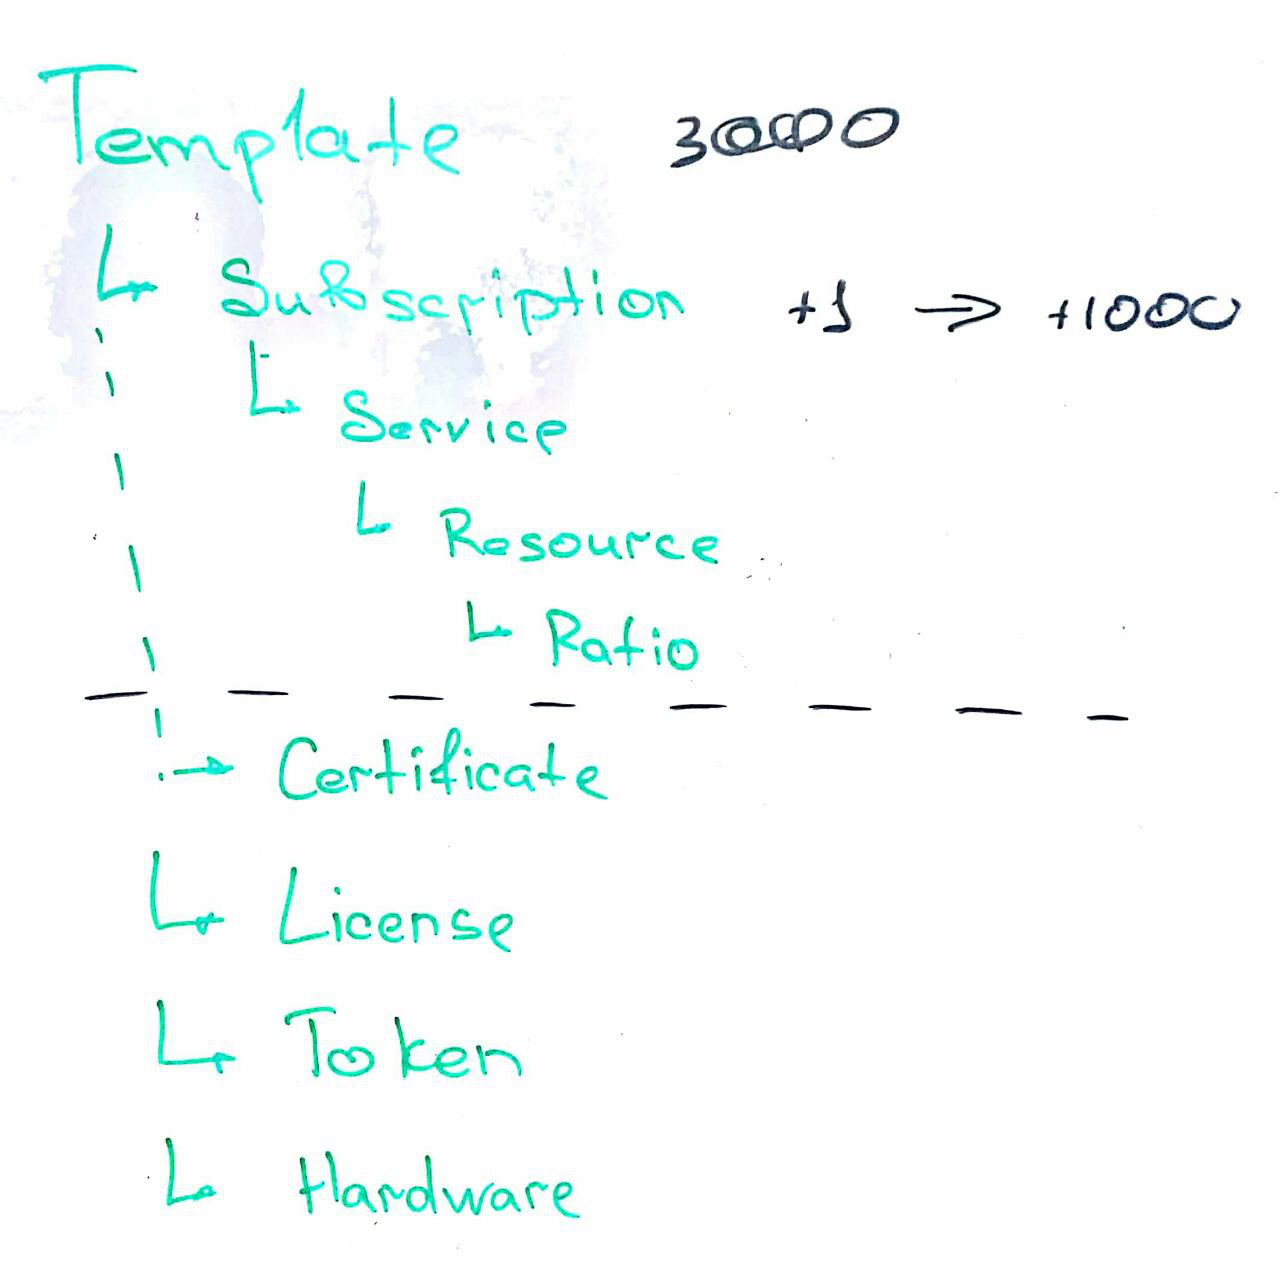 Template 3000
Subscription +1 → +1000
Service
Resource
Ratio
Certificate
License
Token
Hardware